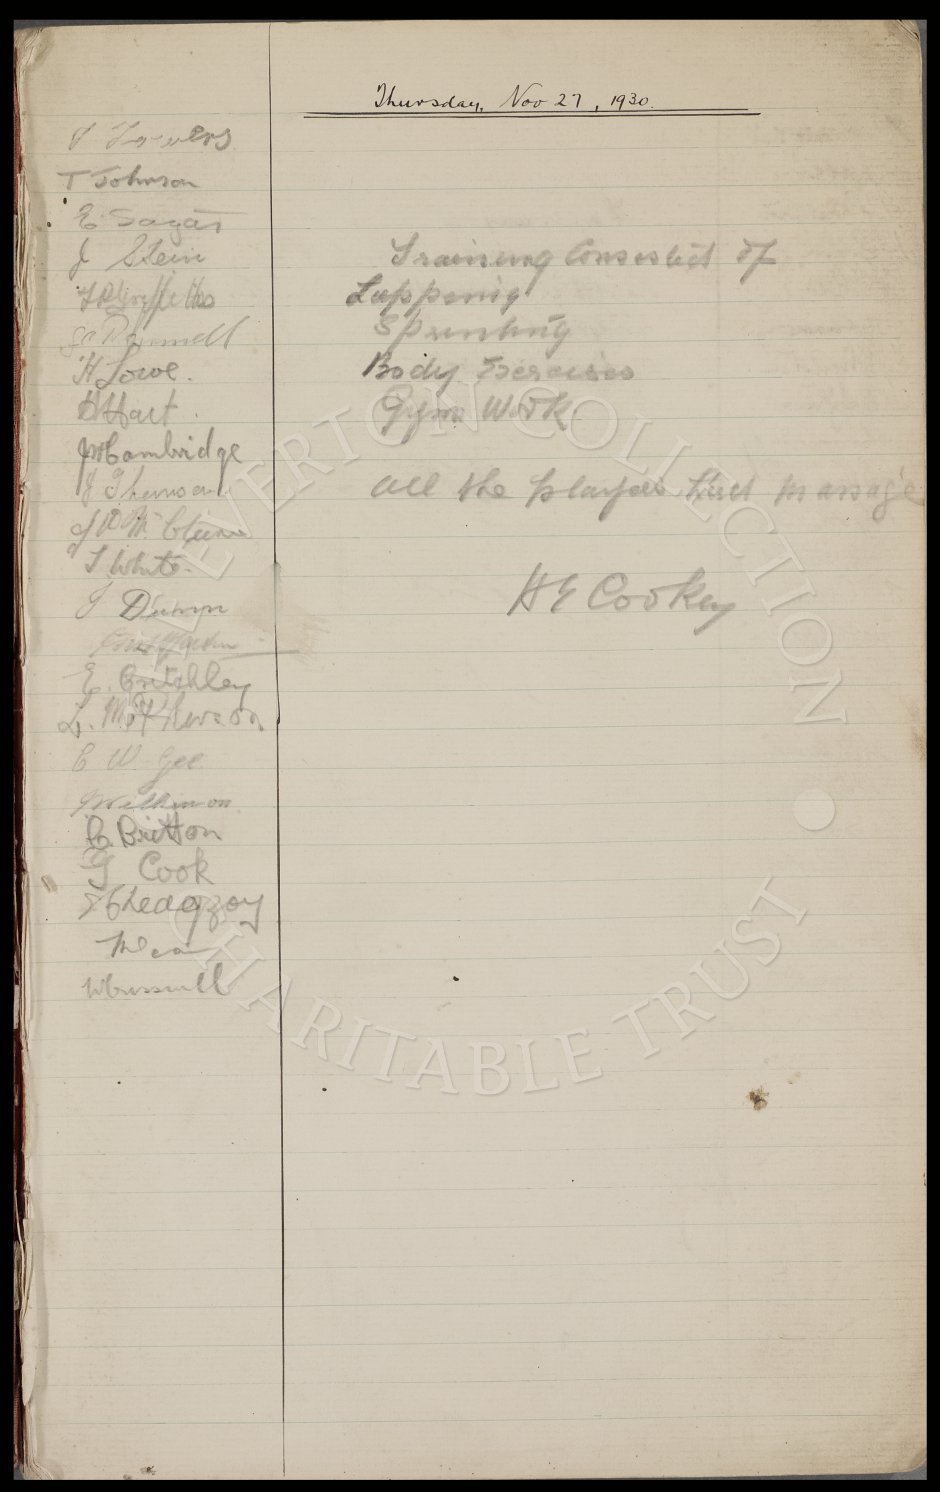 Thursday, Nov 27, 1930.
J Towers
T Johnson
E Sagar
J Stein
H Lowe.
H Hart.
JW Cambridge
J Thomson
T White.
J Dunn
E. Critchley
L. McPherson
C W Gee
J Wilkinson
C. Britton
G Cook
S Chedgzoy
Training Consisted Of
Lapping
Sprinting
Body Exercises
Gym Work
All the players had massage
H E Cooke
THE EVERTON COLLECTION • CHARITABLE TRUST